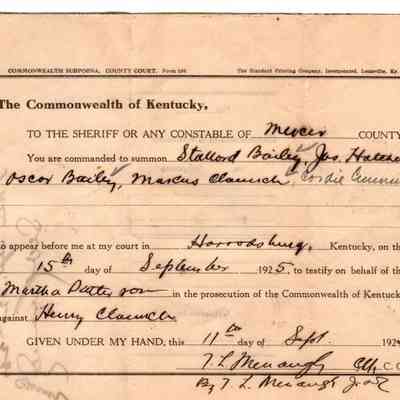 COMMONWEALTH SUBPOENA, COUNTY COURT. Form The Standard Printing Company, Incorporated, Louisville, Ky.
The Commonwealth of Kentucky,
TO THE SHERIFF OR ANY CONSTABLE OF Mercer COUNTY
You are commanded to summon Stafford Bailey, Jas.
Oscar Bailey, Marcus
to appear before me at my court in Harrodsburg, Kentucky, on the
15th day of September 1925, to testify on behalf of the
Martha Patterson in the prosecution of the Commonwealth of Kentucky
against Henry
GIVEN UNDER MY HAND, this 11th day of Sept. 192
T. L. Menaugh Clk. C.C.
By T. L. Menaugh Jr.